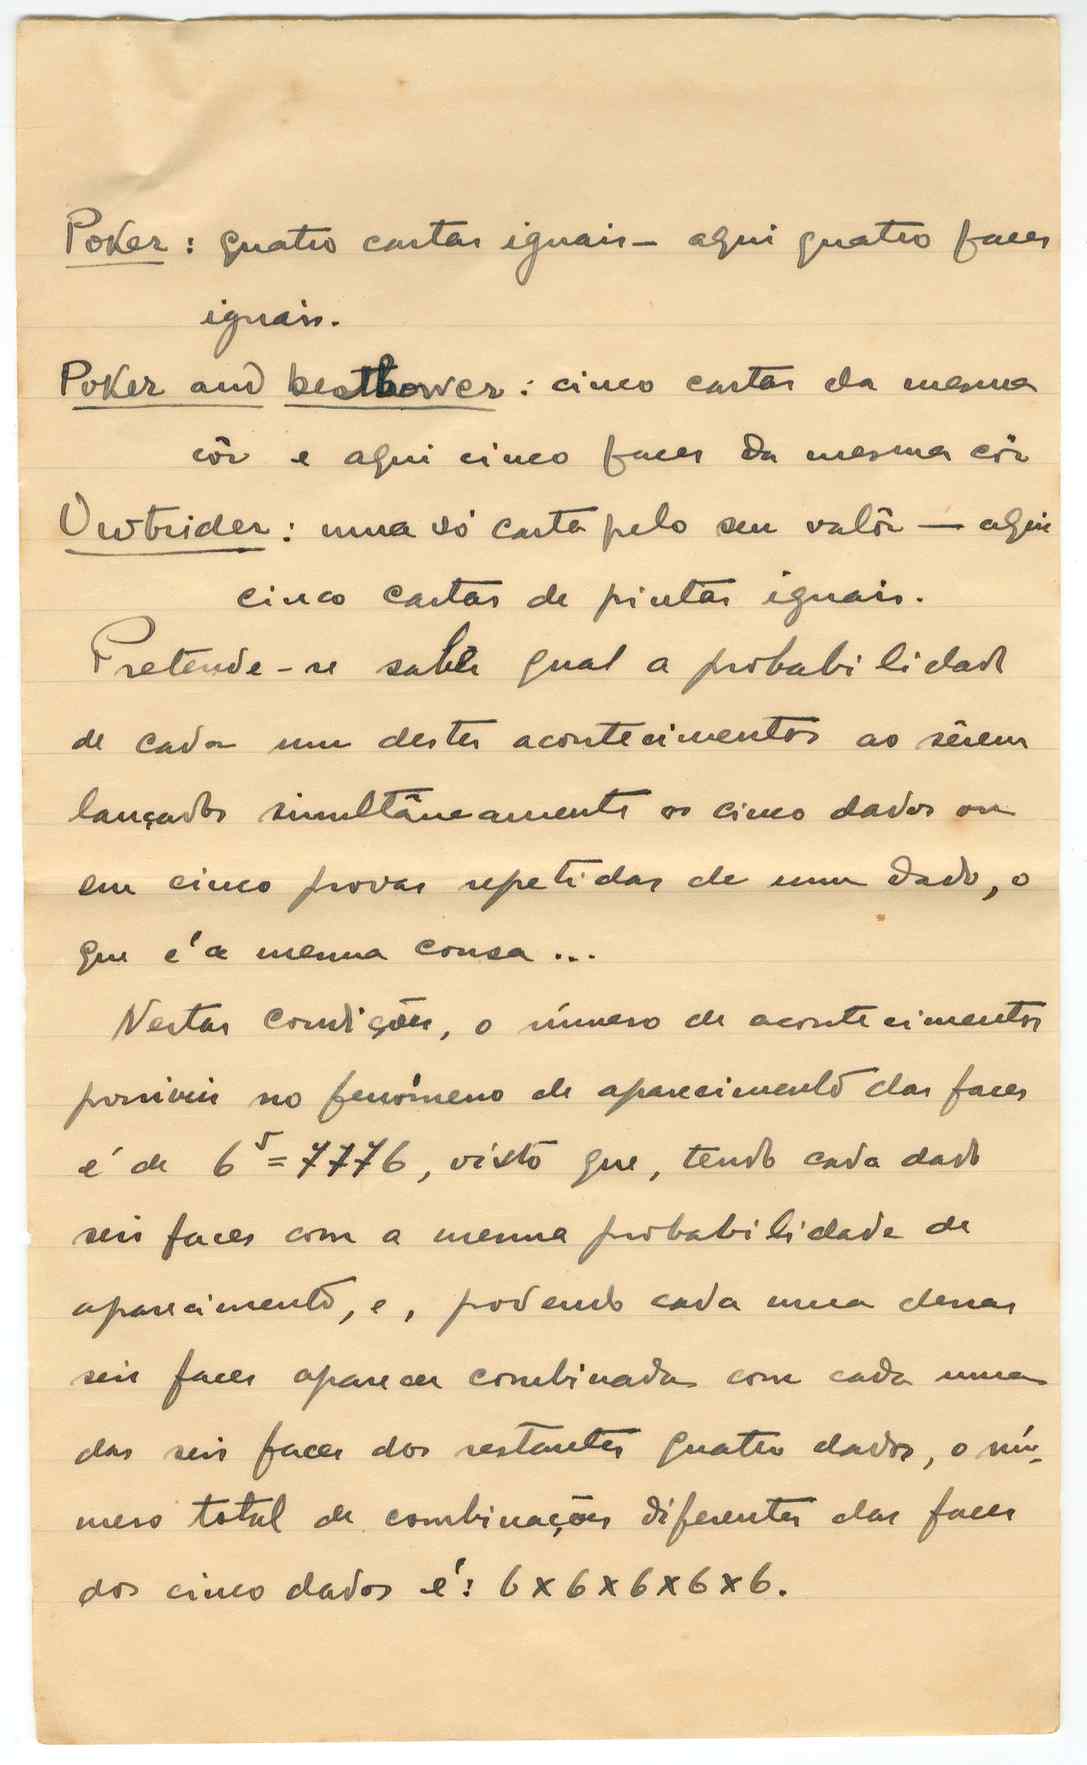 Poker: quatro cartas iguais – aqui quatro faces
iguais.
Poker and bestbower: cinco cartas da mesma
côr e aqui cinco faces da mesma côr
Owtrider: uma só carta pelo seu valôr — aqui
cinco cartas de pintas iguais.
Pretende-se saber qual a probabilidade
de cada um destes acontecimentos ao sêrem
lançados simultâneamente os cinco dados ou
em cinco provas repetidas de um dado, o
que é a mesma cousa...
Nestas condições, o número de acontecimentos
possiveis no fenómeno de aparecimento das faces
é de 6⁵=7776, visto que, tendo cada dado
seis faces com a mesma probabilidade de
aparecimento, e, podendo cada uma dessas
seis faces aparecer combinada com cada uma
das seis faces dos restantes quatro dados, o nú-
mero total de combinações diferentes das faces
dos cinco dados é: 6x6x6x6x6.